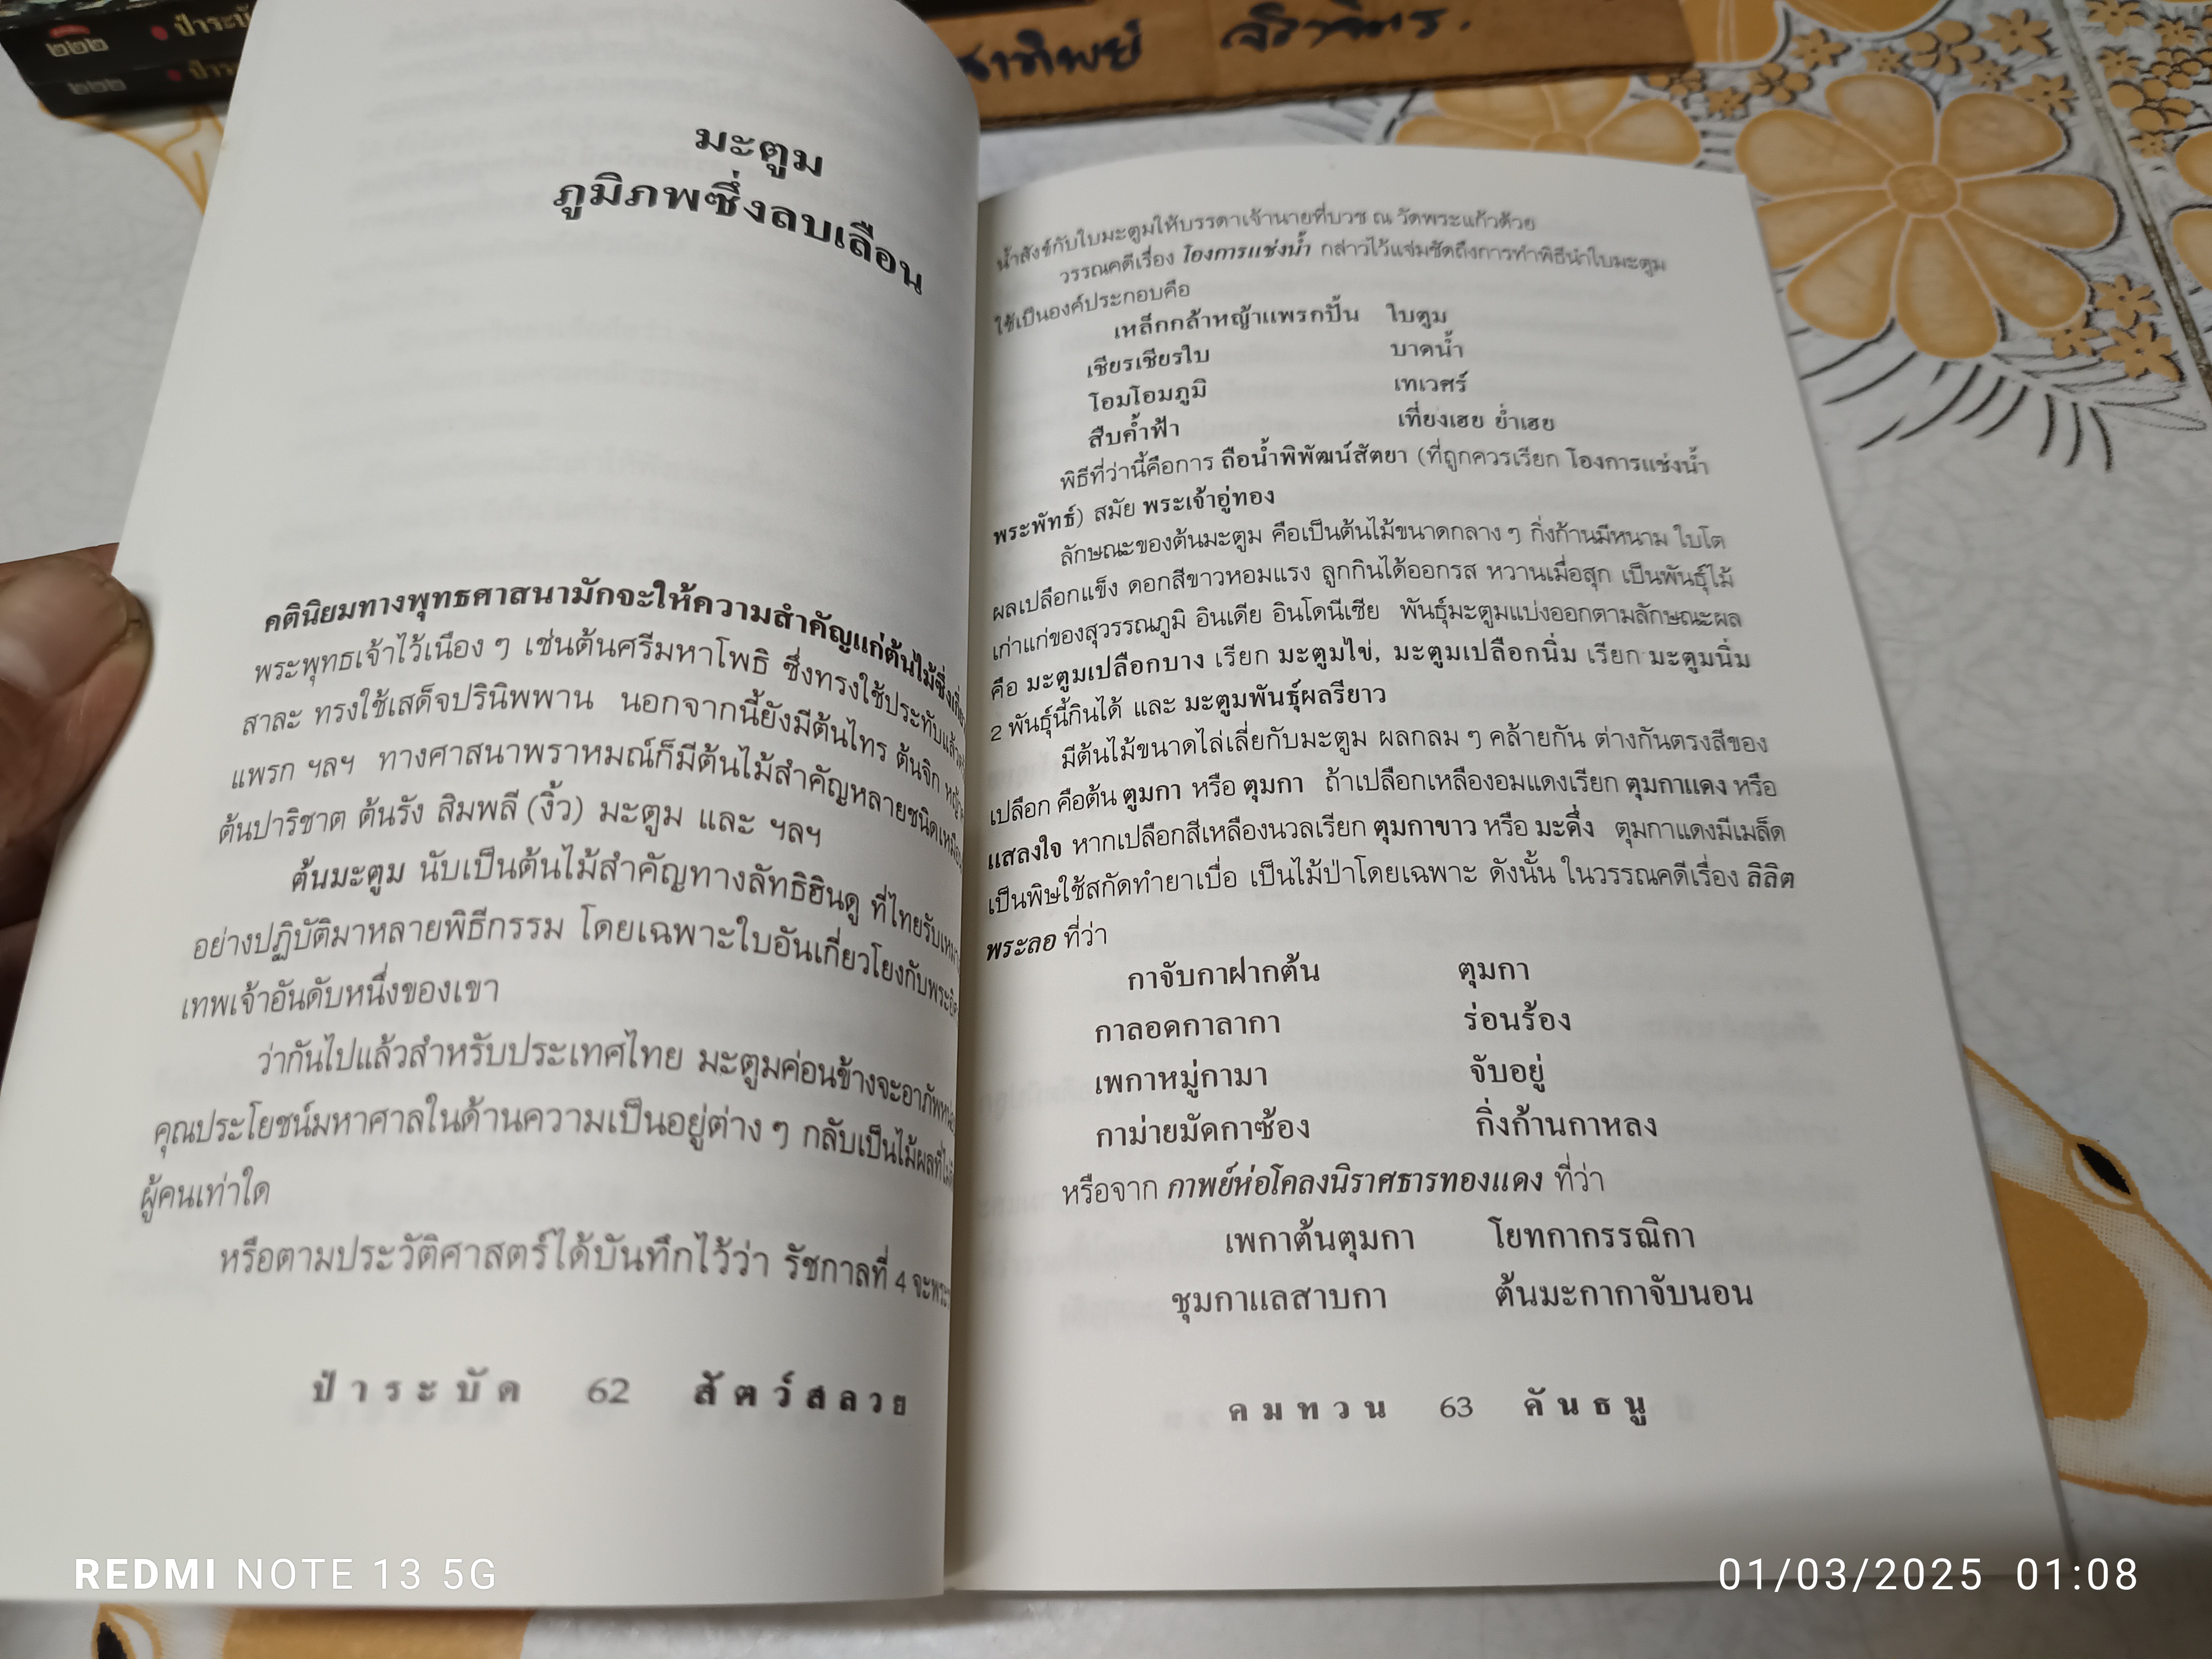 ๒๒๒ ป่าระบัด
๒๒๒ ป่าระ
มะตูม
ภูมิภพซึ่งลบเลือน
คตินิยมทางพุทธศาสนามักจะให้ความสำคัญแก่ต้นไม้ซึ่ง
พระพุทธเจ้าไว้เนือง ๆ เช่นต้นศรีมหาโพธิ ซึ่งทรงใช้ประทับแล้ว
สาละ ทรงใช้เสด็จปรินิพพาน นอกจากนี้ยังมีต้นไทร ต้นจิก
แพรก ฯลฯ ทางศาสนาพราหมณ์ก็มีต้นไม้สำคัญหลายชนิด
ต้นปาริชาต ต้นรัง สิมพลี (งิ้ว) มะตูม และ ฯลฯ
ต้นมะตูม นับเป็นต้นไม้สำคัญทางลัทธิฮินดู ที่ไทยรับ
อย่างปฏิบัติมาหลายพิธีกรรม โดยเฉพาะใบอันเกี่ยวโยงกับ
เทพเจ้าอันดับหนึ่งของเขา
ว่ากันไปแล้วสำหรับประเทศไทย มะตูมค่อนข้างจะอาภัพ
คุณประโยชน์มหาศาลในด้านความเป็นอยู่ต่าง ๆ กลับเป็นไม้ผลที่
ผู้คนเท่าใด
หรือตามประวัติศาสตร์ได้บันทึกไว้ว่า รัชกาลที่ 4 จะ
ป่าระบัด 62 สัตว์สลวย
น้ำสังข์กับใบมะตูมให้บรรดาเจ้านายที่บวช ณ วัดพระแก้วด้วย
วรรณคดีเรื่อง โองการแช่งน้ำ กล่าวไว้แจ่มชัดถึงการทำพิธีนำใบมะตูม
ใช้เป็นองค์ประกอบคือ
เหล็กกล้าหญ้าแพรกปั้น ใบตูม
เชียรเชียรใบ บาดน้ำ
โอมโอมภูมิ เทเวศร์
สืบค้ำฟ้า เที่ยงเฮย ย่ำเฮย
พิธีที่ว่านี้คือการ ถือน้ำพิพัฒน์สัตยา (ที่ถูกควรเรียก โองการแช่งน้ำ
พระพัทธ์) สมัย พระเจ้าอู่ทอง
ลักษณะของต้นมะตูม คือเป็นต้นไม้ขนาดกลาง ๆ กิ่งก้านมีหนาม ใบโต
ผลเปลือกแข็ง ดอกสีขาวหอมแรง ลูกกินได้ออกรส หวานเมื่อสุก เป็นพันธุ์ไม้
เก่าแก่ของสุวรรณภูมิ อินเดีย อินโดนีเซีย พันธุ์มะตูมแบ่งออกตามลักษณะผล
คือ มะตูมเปลือกบาง เรียก มะตูมไข่, มะตูมเปลือกนิ่ม เรียก มะตูมนิ่ม
2 พันธุ์นี้กินได้ และ มะตูมพันธุ์ผลรียาว
มีต้นไม้ขนาดไล่เลี่ยกับมะตูม ผลกลม ๆ คล้ายกัน ต่างกันตรงสีของ
เปลือก คือต้น ตูมกา หรือ ตุมกา ถ้าเปลือกเหลืองอมแดงเรียก ตุมกาแดง หรือ
แสลงใจ หากเปลือกสีเหลืองนวลเรียก ตุมกาขาว หรือ มะคึ่ง ตุมกาแดงมีเมล็ด
เป็นพิษใช้สกัดทำยาเบื่อ เป็นไม้ป่าโดยเฉพาะ ดังนั้น ในวรรณคดีเรื่อง ลิลิต
พระลอ ที่ว่า
กาจับกาฝากต้น ตุมกา
กาลอดกาลากา ร่อนร้อง
เพกาหมู่กามา จับอยู่
กาม่ายมัดกาซ้อง กิ่งก้านกาหลง
หรือจาก กาพย์ห่อโคลงนิราศธารทองแดง ที่ว่า
เพกาต้นตุมกา โยทกากรรณิกา
ชุมกาแลสาบกา ต้นมะกากาจับนอน
คมทวน 63 คันธนู
REDMI NOTE 13 5G
01/03/2025 01:08